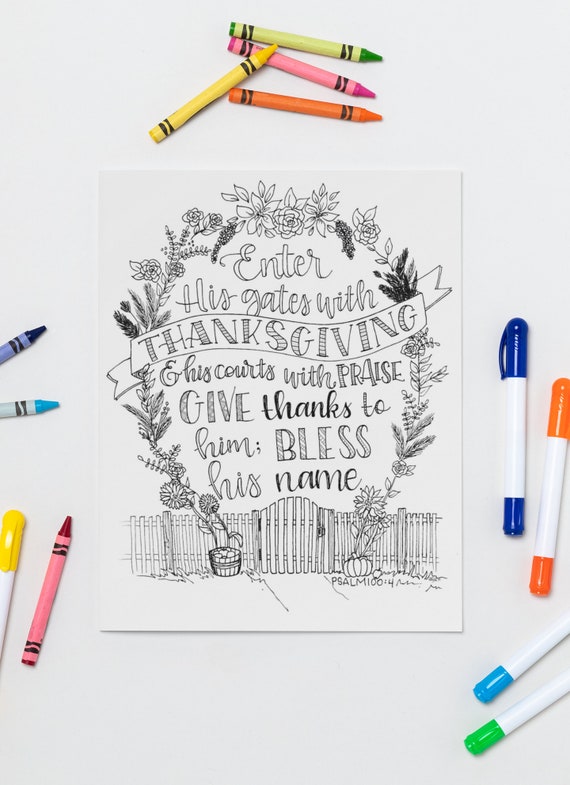 Enter
His gates with
THANKSGIVING
& his courts with PRAISE
GIVE thanks to
him; BLESS
his name
PSALM 100:4